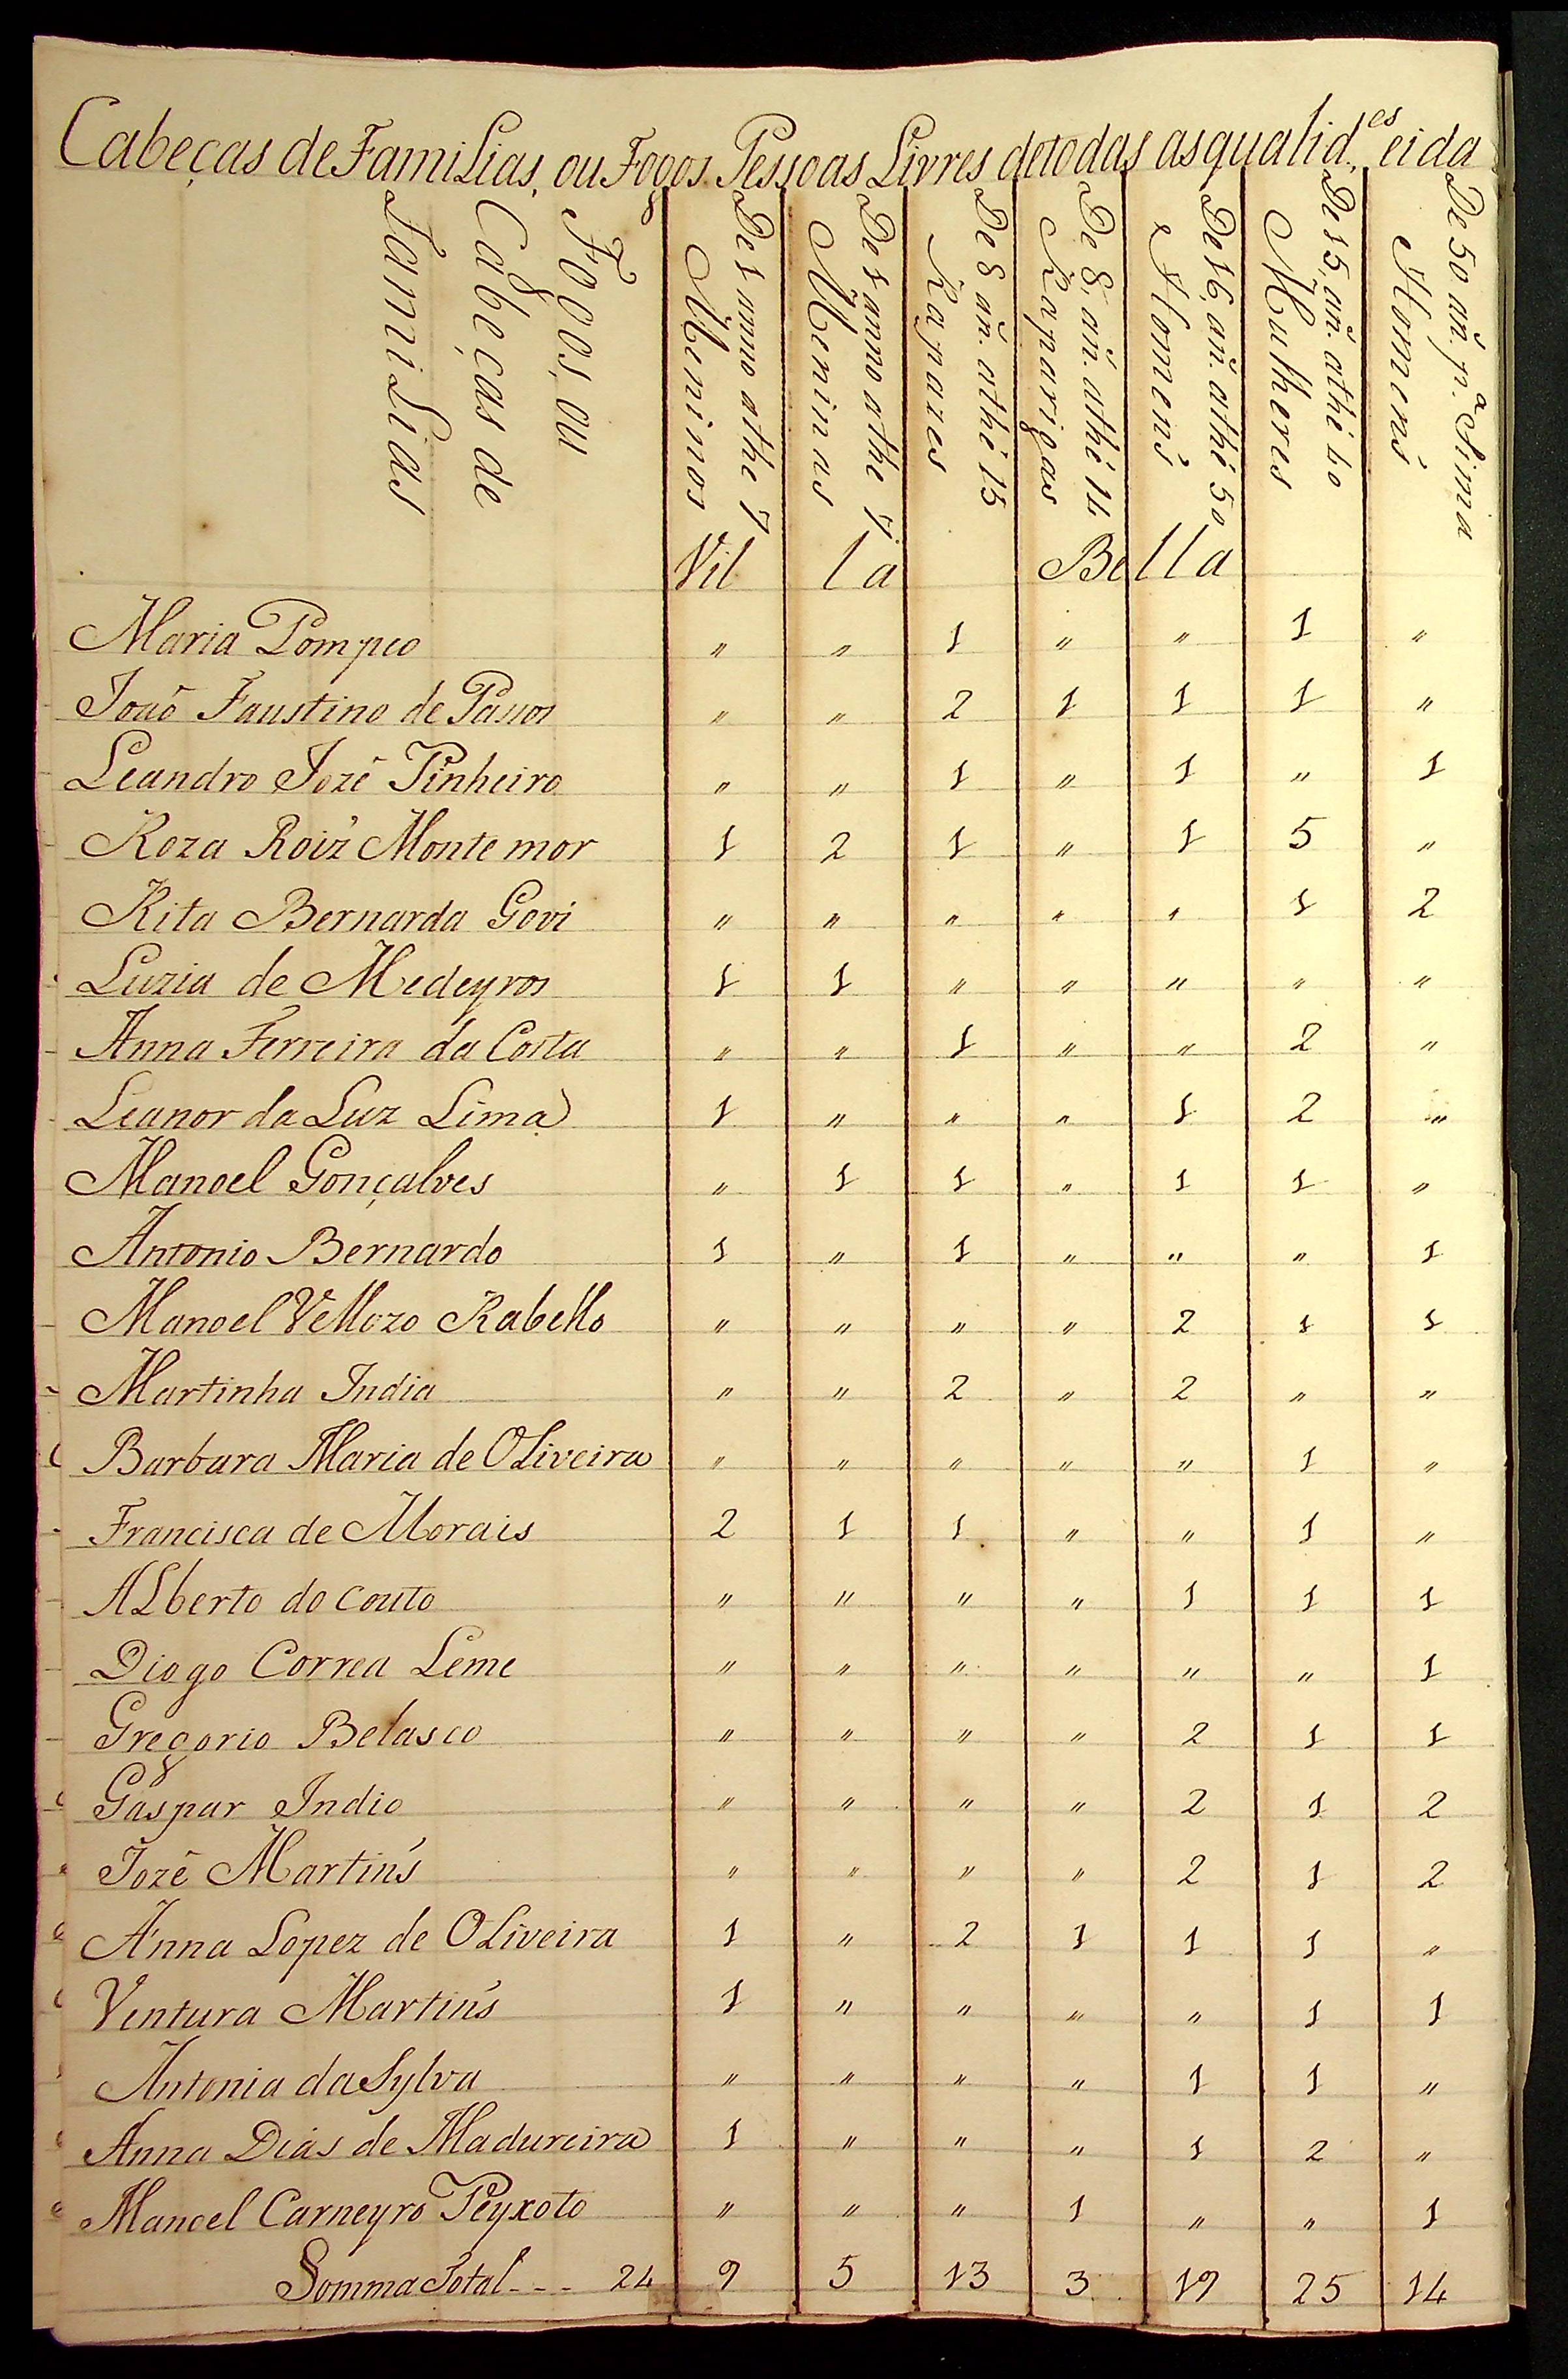 Cabeças de Familias, ou Fogos. Pessoas Livres detodas asqualid.es eida
Fogos, ou
Cabeças de
Familias
De 1 anno athe 7
Meninos
De 1 anno athe 7
Meninas
De 8 añ. athé 15
Rapazes
De 8, añ. athé 14
Raparigas
De 16, añ. athé 50
Homens
De 15, añ. athé 40
Mulheres
De 50 añ. p.a Sima
Homens
Vil la Be lla
Maria Pompeo " " 1 " " 1 "
Joaõ Faustino de Passos " " 2 1 1 1 "
Leandro Jozé Pinheiro " " 1 " 1 " 1
Roza Roiz Monte mor 1 2 1 " 1 5 "
Rita Bernarda Govi " " " " " 1 2
Luzia de Medeyros 1 1 " " " " "
Anna Ferreira da Costa " " 1 " " 2 "
Leanor da Luz Lima 1 " " " 1 2 "
Manoel Gonçalves " 1 1 " 1 1 "
Antonio Bernardo 1 " 1 " " " 1
Manoel Vellozo Rabello " " " " 2 1 1
Martinha India " " 2 " 2 " "
Barbara Maria de OLiveira " " " " " 1 "
Francisca de Morais 2 1 1 " " 1 "
ALberto do Couto " " " " 1 1 1
Diogo Correa Leme " " " " " " 1
Gregorio Belasco " " " " 2 1 1
Gaspar Indio " " " " 2 1 2
Jozé Martins " " " " 2 1 2
Anna Lopez de OLiveira 1 " 2 1 1 1 "
Ventura Martins 1 " " " " 1 1
Antonia da Sylva " " " " 1 1 "
Anna Dias de Madureira 1 " " " 1 2 "
Manoel Carneyro Peyxoto " " " 1 " " 1
Somma Total - - - 24 9 5 13 3 19 25 14